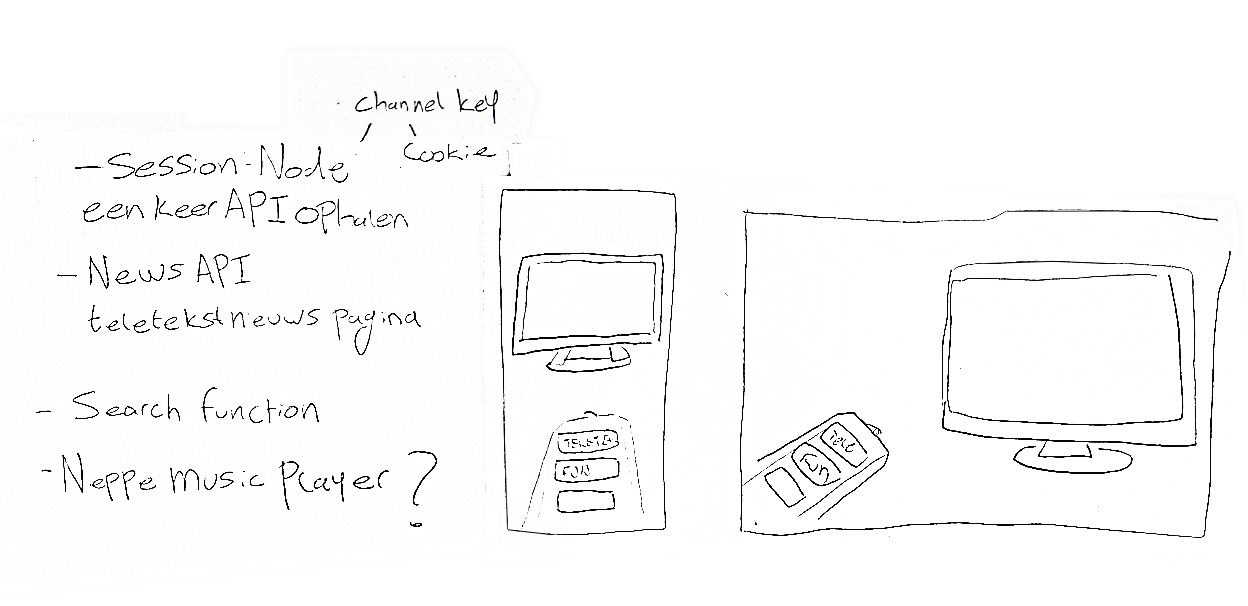 Channel key
Cookie
- Session-Node
een keer API ophalen
- News API
teletekst nieuws pagina
- Search function
- Neppe music Player ?
FUN
Text
Fun